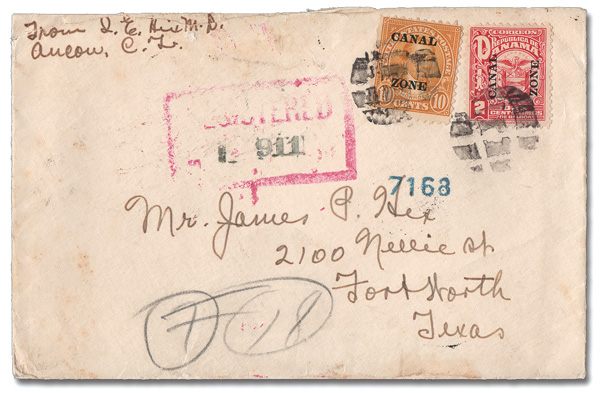 From I. E. Hix M.D.
Ancon, C. Z.
CANAL
ZONE
10 CENTS 10
CORREOS
REPUBLICA DE
PANAMA
CANAL ZONE
2
REGISTERED
911
7168
Mr. James P. Hix
2100 Nellie St
Fort Worth
Texas